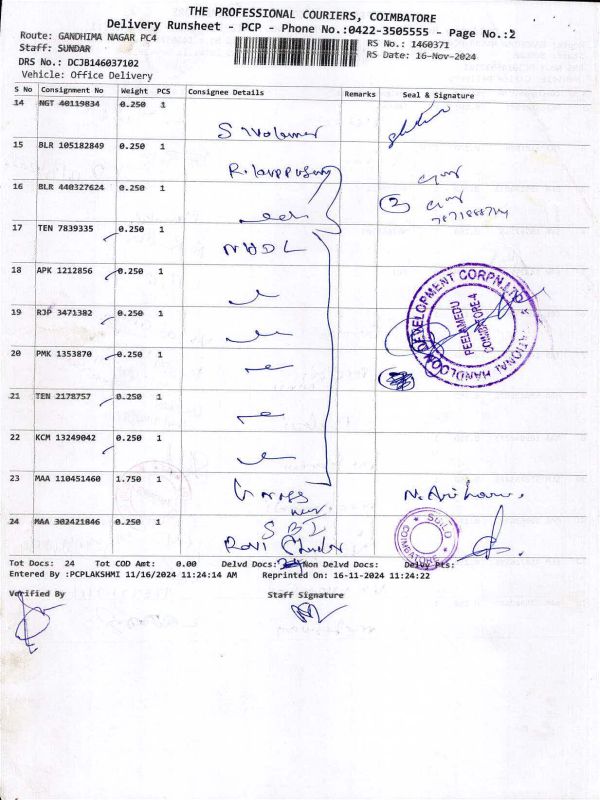 THE PROFESSIONAL COURIERS, COIMBATORE
Delivery Runsheet - PCP - Phone No.:0422-3505555 - Page No.:2
Route: GANDHIMA NAGAR PC4
RS No.: 1460371
Staff: SUNDAR
RS Date: 16-Nov-2024
DRS No.: DCJB146037102
Vehicle: Office Delivery
S No Consignment No Weight PCS Consignee Details Remarks Seal & Signature
14 NGT 40119834 0.250 1
15 BLR 105182849 0.250 1
16 BLR 440327624 0.250 1
17 TEN 7839335 0.250 1 NHDL
18 APK 1212856 0.250 1
19 RJP 3471382 0.250 1
20 PMK 1353870 0.250 1
21 TEN 2178757 0.250 1
22 KCM 13249042 0.250 1
NATIONAL HANDLOOM DEVELOPMENT CORPN.LTD
PEELAMEDU
COIMBATORE-4
23 MAA 110451460 1.750 1
24 MAA 302421846 0.250 1 SBI
COIMBATORE
Tot Docs: 24 Tot COD Amt: 0.00 Delvd Docs: Non Delvd Docs: Delvy Pts:
Entered By :PCPLAKSHMI 11/16/2024 11:24:14 AM Reprinted On: 16-11-2024 11:24:22
Verified By Staff Signature